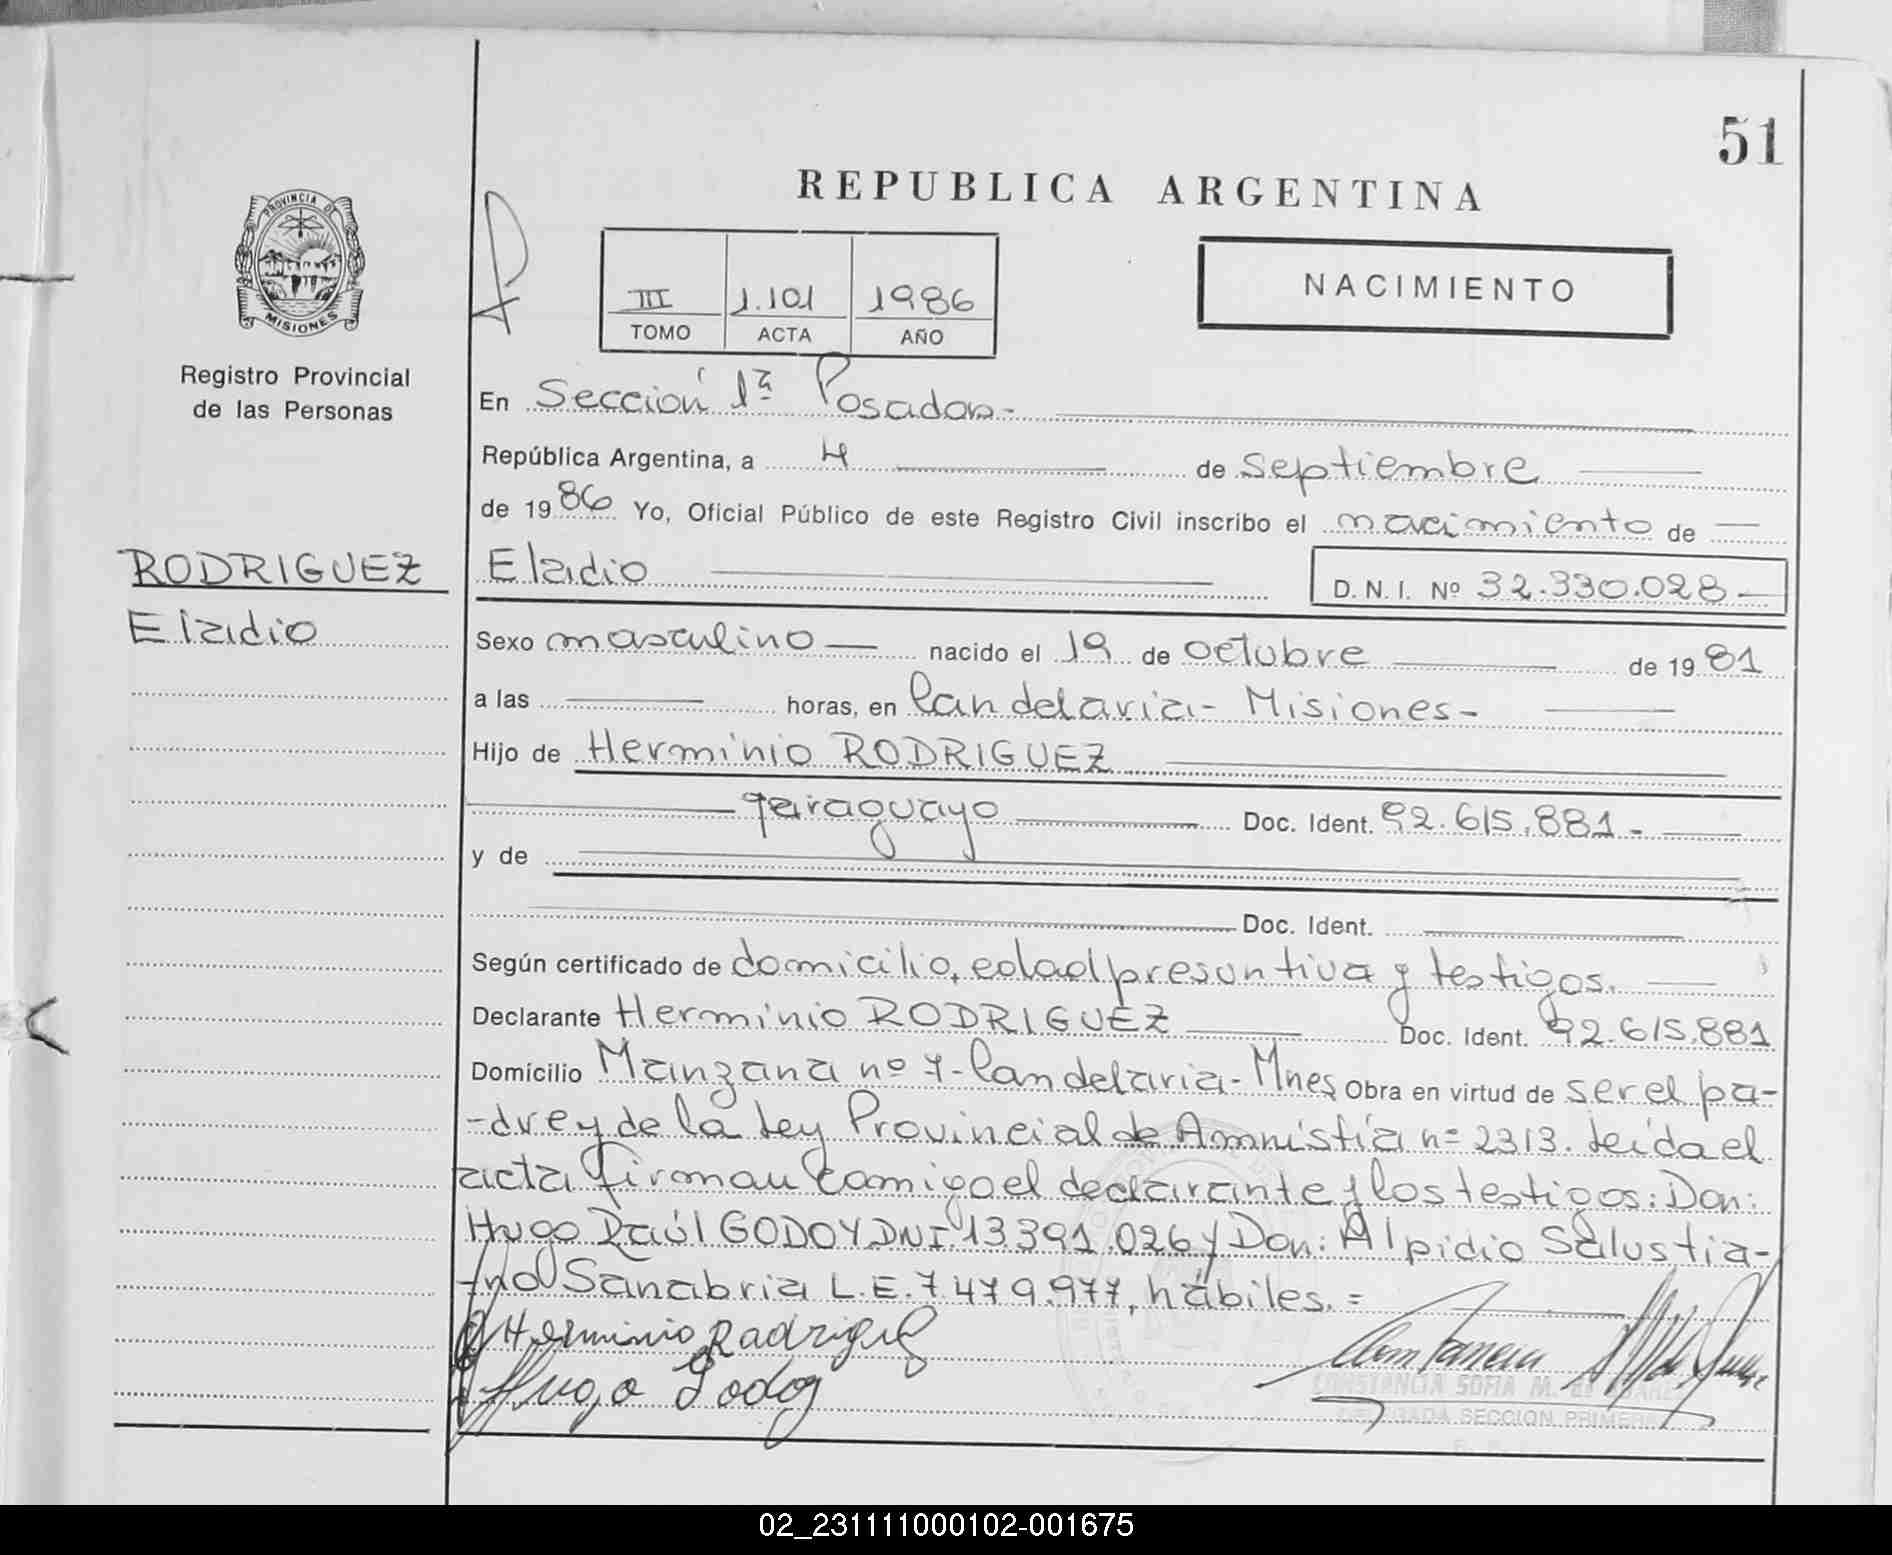 51
REPUBLICA ARGENTINA
PROVINCIA DE
MISIONES
Registro Provincial
de las Personas
III 1.101 1986
TOMO ACTA AÑO
NACIMIENTO
En Sección 1ª Posadas-
República Argentina, a 4 de septiembre
de 1986 Yo, Oficial Público de este Registro Civil inscribo el nacimiento de
RODRIGUEZ
Eladio
Eladio D.N.I. Nº 32.330.028-
Sexo masculino nacido el 19 de octubre de 1981
a las horas, en Candelaria- Misiones-
Hijo de Herminio RODRIGUEZ
paraguayo Doc. Ident. 92.615.881.-
y de
Doc. Ident.
Según certificado de domicilio, edad presuntiva y testigos.
Declarante Herminio RODRIGUEZ Doc. Ident. 92.615.881
Domicilio Manzana nº 7- Candelaria- Mnes Obra en virtud de ser el pa-
-dre y de la Ley Provincial de Amnistía nº 2313. Leída el
acta firman comigo el declarante y los testigos: Don:
Hugo Raúl GODOY DNI 13.391.026 y Don: Alpidio Salustia-
-no Sanabria L.E. 7.479.977, hábiles. =
Herminio Rodriguez
Hugo Godoy
CONSTANCIA SOFIA M. DE
DELEGADA SECCION PRIMERA
02_231111000102-001675